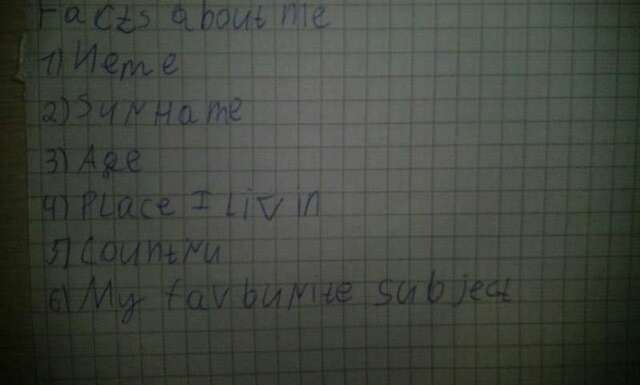 Facts about me
1) Neme
2) Surname
3) Age
4) Place I Liv in
5) Country
6) My favourite subject